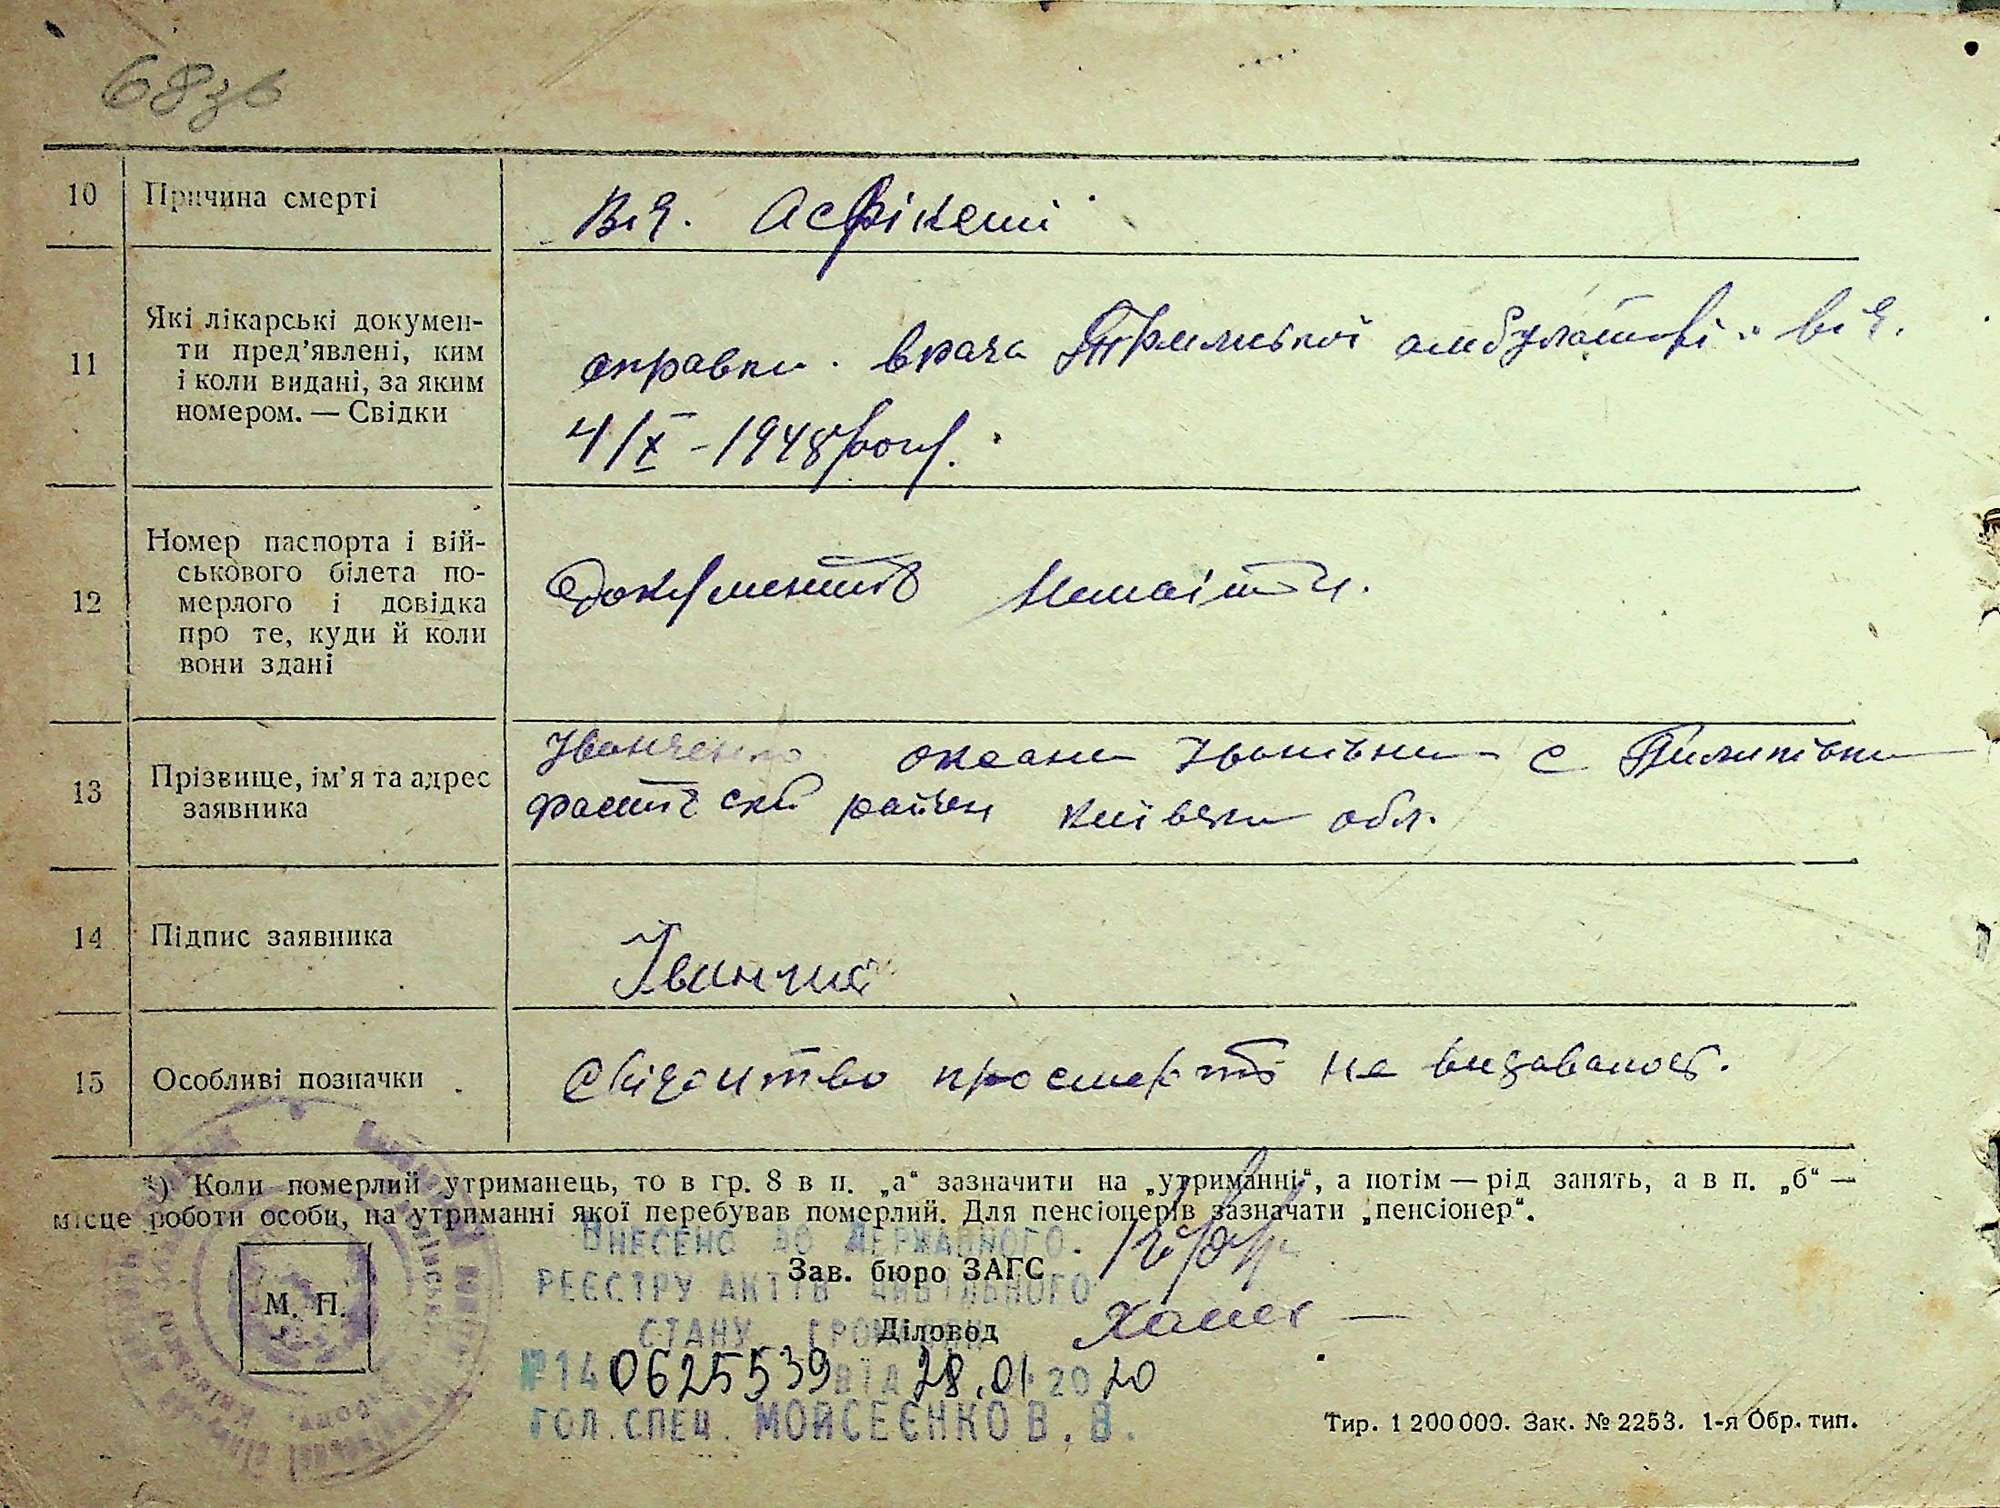 68зв
10 Причина смерті
Від Асфікеті
11 Які лікарські докумен-
ти пред’явлені, ким
і коли видані, за яким
номером. — Свідки
справки врача амбулаторі від
4/X - 1948 року.
12 Номер паспорта і вій-
ськового білета по-
мерлого і довідка
про те, куди й коли
вони здані
Документів
13 Прізвище, ім’я та адрес
заявника
Іванченко оксани Іванівни с Пилипівки
район київски обл.
14 Підпис заявника
Іванчик
15 Особливі позначки
Свідоцтво просмерті не видавалось.
*) Коли померлий утриманець, то в гр. 8 в п. „а“ зазначити на „утриманні“, а потім — рід занять, а в п. „б“ —
місце роботи особи, на утриманні якої перебував померлий. Для пенсіонерів зазначати „пенсіонер“.
Внесено до Державного
Зав. бюро ЗАГС
реєстру актів цивільного
стану громадян
Діловод
М. П.
№140625539 від 28.01 2020
гол. спец. Мойсеєнко В. В.
Тир. 1 200 000. Зак. № 2253. 1-я Обр. тип.